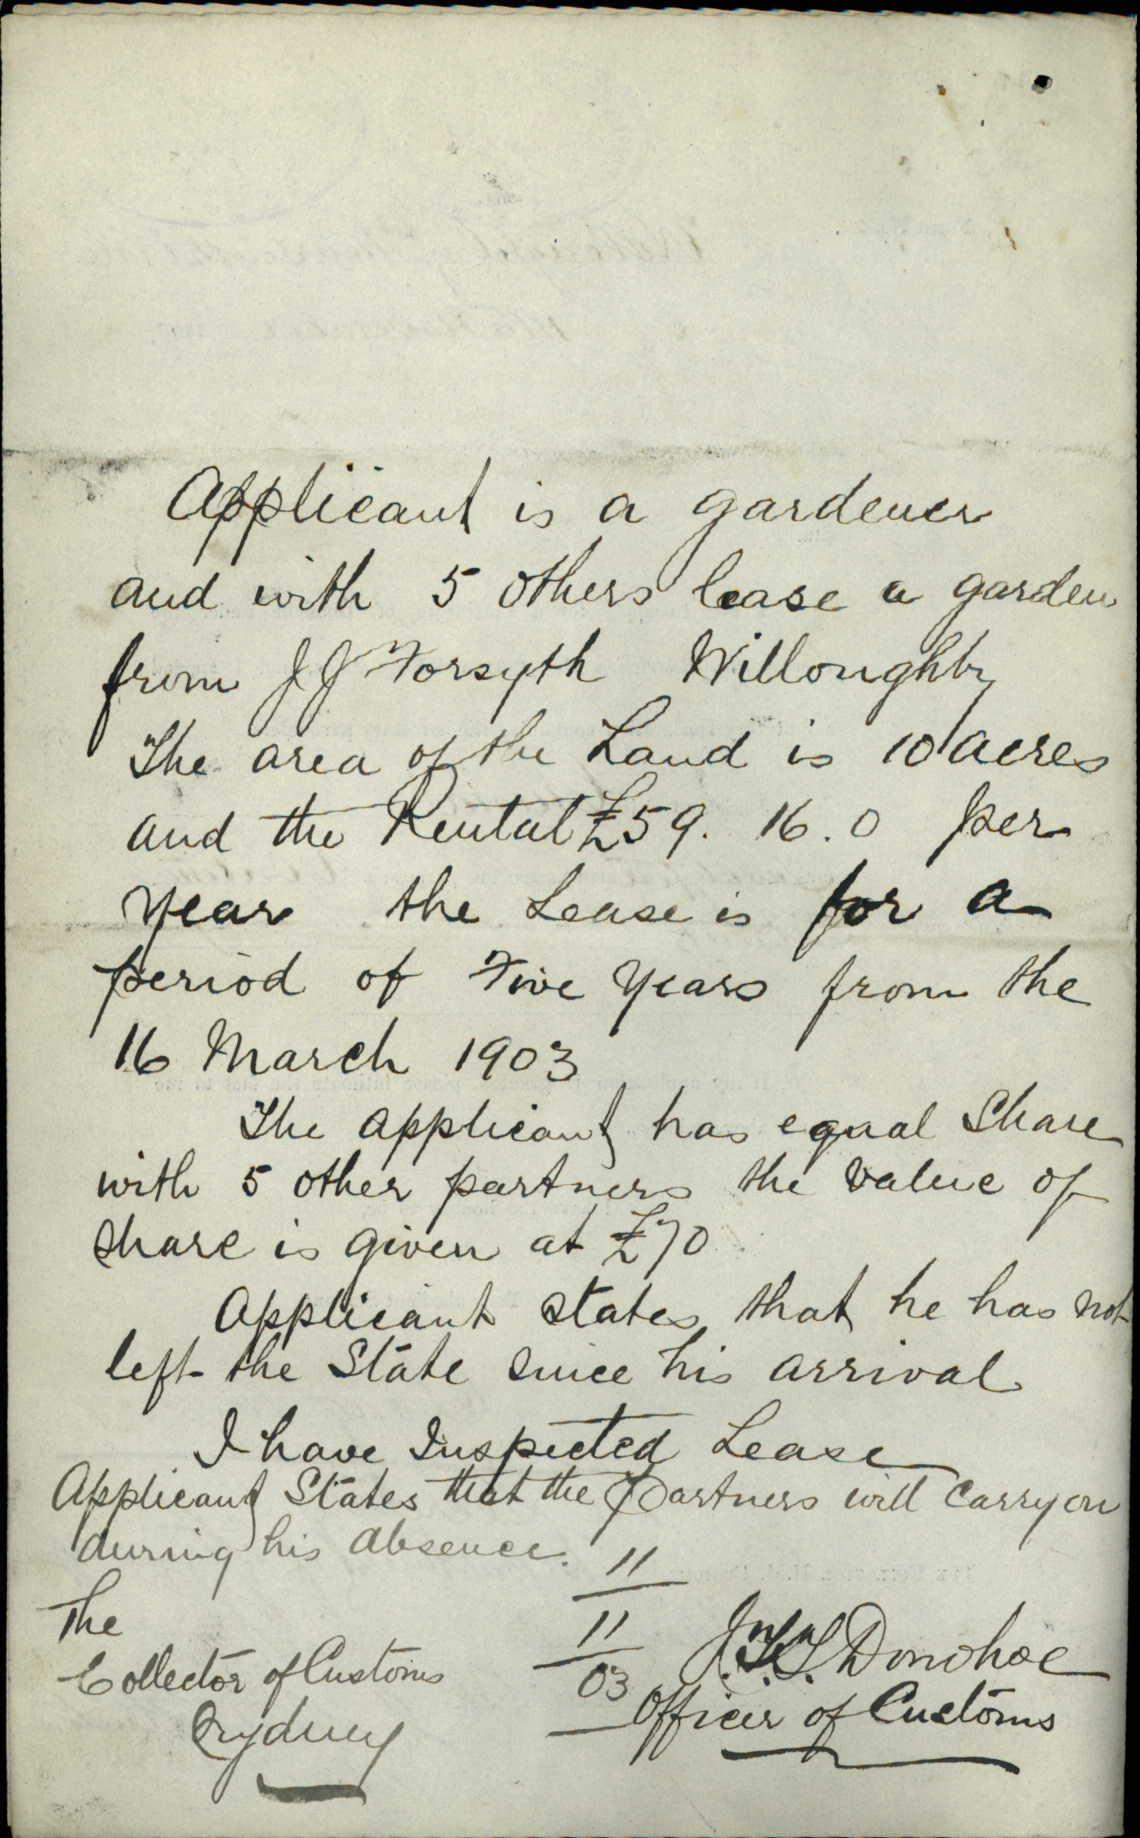 Applicant is a gardener
and with 5 others lease a garden
from J J Forsyth Willoughby
The area of the Land is 10 acres
and the Rental £59. 16. 0 per
year the Lease is for a
period of Five years from the
16 March 1903
The applicant has equal Share
with 5 other partners the value of
share is given at £70
Applicant states that he has not
left the State since his arrival
I have Inspected Lease
Applicant States that the Partners will carry on
during his absence.
11
11
03
The
Collector of Customs
Sydney
Donohoe
Officer of Customs